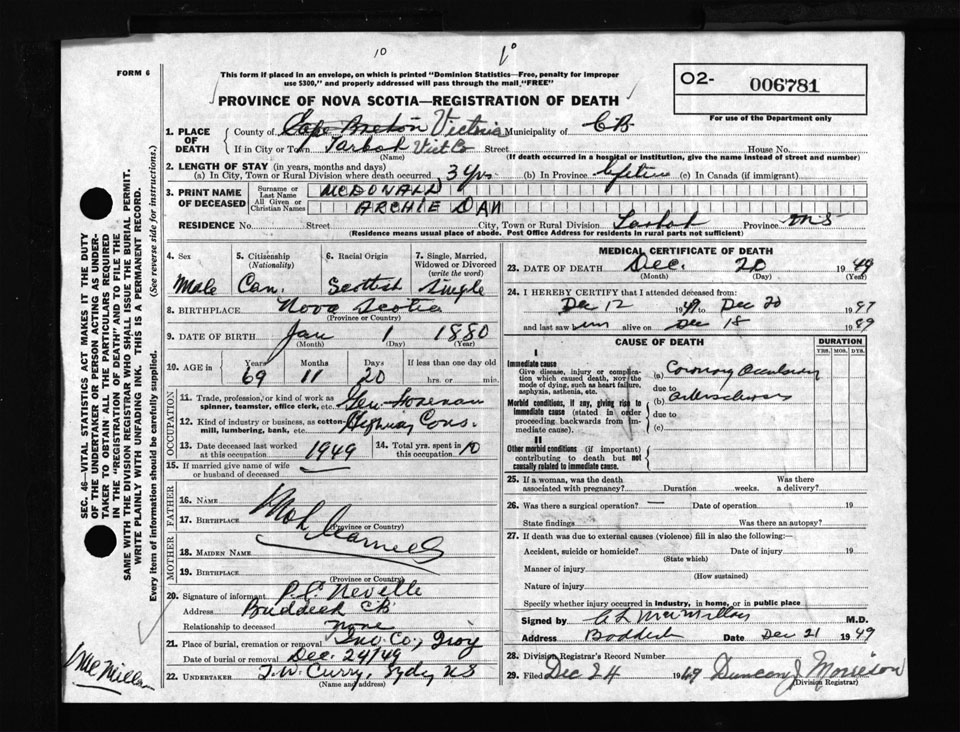 10
FORM 6
This form if placed in an envelope, on which is printed "Dominion Statistics—Free, penalty for improper
use $300," and properly addressed will pass through the mail "FREE"
O2- 006781
For use of the Department only
PROVINCE OF NOVA SCOTIA—REGISTRATION OF DEATH
1. PLACE OF DEATH
County of Cape Breton Victoria Municipality of CB
If in City or Town Tarbot Vict B Street House No.
(Name) (If death occurred in a hospital or institution, give the name instead of street and number)
2. LENGTH OF STAY (in years, months and days)
(a) In City, Town or Rural Division where death occurred 3 yrs (b) In Province lifetime (c) In Canada (if immigrant)
3. PRINT NAME OF DECEASED
Surname or Last Name MCDONALD
All Given or Christian Names ARCHIE DAN
RESIDENCE No. Street City, Town or Rural Division Tarbot Province NS
(Residence means usual place of abode. Post Office Address for residents in rural parts not sufficient)
4. Sex Male
5. Citizenship (Nationality) Can.
6. Racial Origin Scottish
7. Single, Married, Widowed or Divorced (write the word) Single
8. BIRTHPLACE Nova Scotia
(Province or Country)
9. DATE OF BIRTH Jan 1 1880
(Month) (Day) (Year)
10. AGE in Years 69 Months 11 Days 20 If less than one day old
hrs. or min.
OCCUPATION
11. Trade, profession, or kind of work as
spinner, teamster, office clerk, etc. Gen Foreman
12. Kind of industry or business, as cotton-
mill, lumbering, bank, etc. Highway Cons.
13. Date deceased last worked
at this occupation 1949
14. Total yrs. spent in
this occupation 10
15. If married give name of wife
or husband of deceased
FATHER
16. NAME
17. BIRTHPLACE
(Province or Country)
Not
MOTHER
18. MAIDEN NAME
19. BIRTHPLACE
(Province or Country)
20. Signature of informant P.C. Neville
Address Baddeck CB
Relationship to deceased none
21. Place of burial, cremation or removal Co.,
Date of burial or removal Dec. 24/49
22. UNDERTAKER T.W. Curry, Sydney NS
(Name and address)
MEDICAL CERTIFICATE OF DEATH
23. DATE OF DEATH Dec. 20 1949
(Month) (Day) (Year)
24. I HEREBY CERTIFY that I attended deceased from:
Dec 12 1949 to Dec 20 19
and last saw him alive on Dec 18 19
CAUSE OF DEATH
DURATION
YRS. MOS. DYS.
I
Immediate cause
Give disease, injury or complica-
tion which caused death, NOT the
mode of dying, such as heart failure,
asphyxia, asthenia, etc.
(a) Coronary Occlusion
due to
Morbid conditions, if any, giving rise to
immediate cause (stated in order
proceeding backwards from im-
mediate cause).
(b) Arteriosclerosis
due to
(c)
II
Other morbid conditions (if important)
contributing to death but not
causally related to immediate cause.
25. If a woman, was the death
associated with pregnancy? Duration weeks. Was there
a delivery?
26. Was there a surgical operation? — Date of operation 19
State findings Was there an autopsy?
27. If death was due to external causes (violence) fill in also the following:—
Accident, suicide or homicide? Date of injury 19
(State which)
Manner of injury
(How sustained)
Nature of injury
Specify whether injury occurred in industry, in home, or in public place
Signed by C L MacMillan M.D.
Address Baddeck Date Dec 21 1949
28. Division Registrar's Record Number
29. Filed Dec 24 1949 Duncan J Morrison
(Division Registrar)
SEC. 46—VITAL STATISTICS ACT MAKES IT THE DUTY
OF THE UNDERTAKER OR PERSON ACTING AS UNDER-
TAKER TO OBTAIN ALL THE PARTICULARS REQUIRED
IN THE "REGISTRATION OF DEATH" AND TO FILE THE
SAME WITH THE DIVISION REGISTRAR WHO SHALL ISSUE THE BURIAL PERMIT.
WRITE PLAINLY WITH UNFADING INK. THIS IS A PERMANENT RECORD.
Every item of information should be carefully supplied. (See reverse side for instructions.)